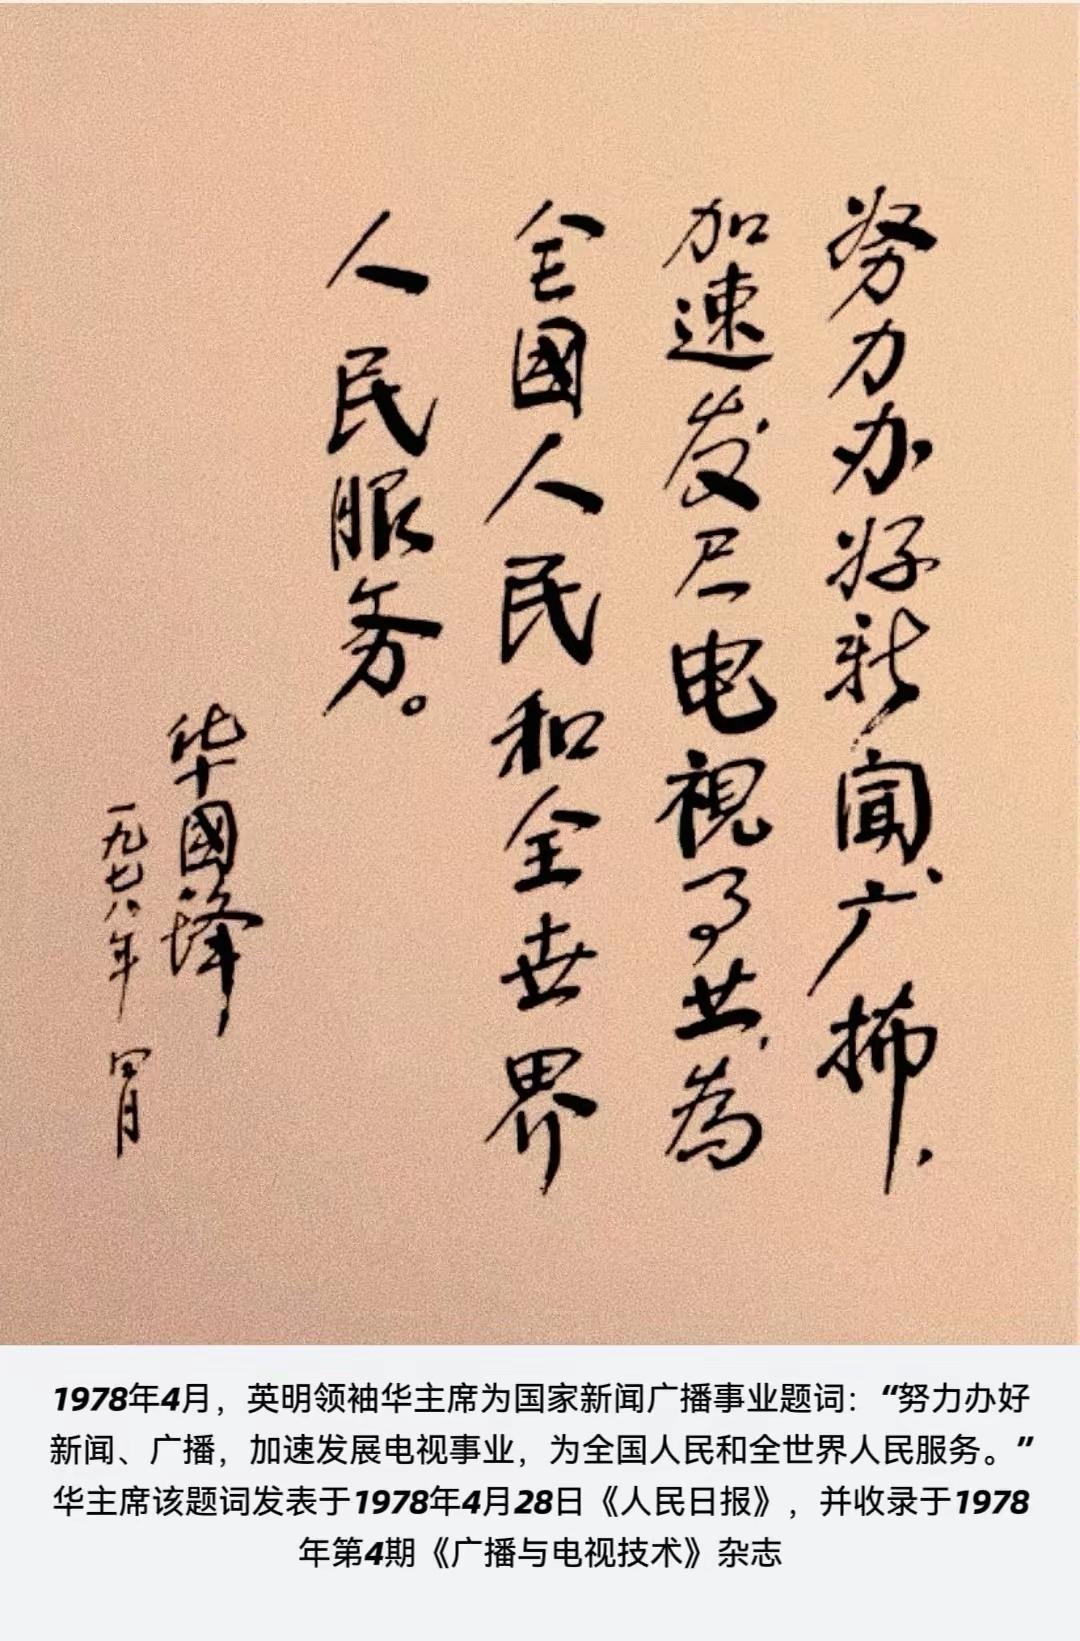 努力办好新闻、广播，
加速发展电視事业，為
全國人民和全世界
人民服务。
华國锋
一九七八年四月
1978年4月，英明领袖华主席为国家新闻广播事业题词：“努力办好
新闻、广播，加速发展电视事业，为全国人民和全世界人民服务。”
华主席该题词发表于1978年4月28日《人民日报》，并收录于1978
年第4期《广播与电视技术》杂志